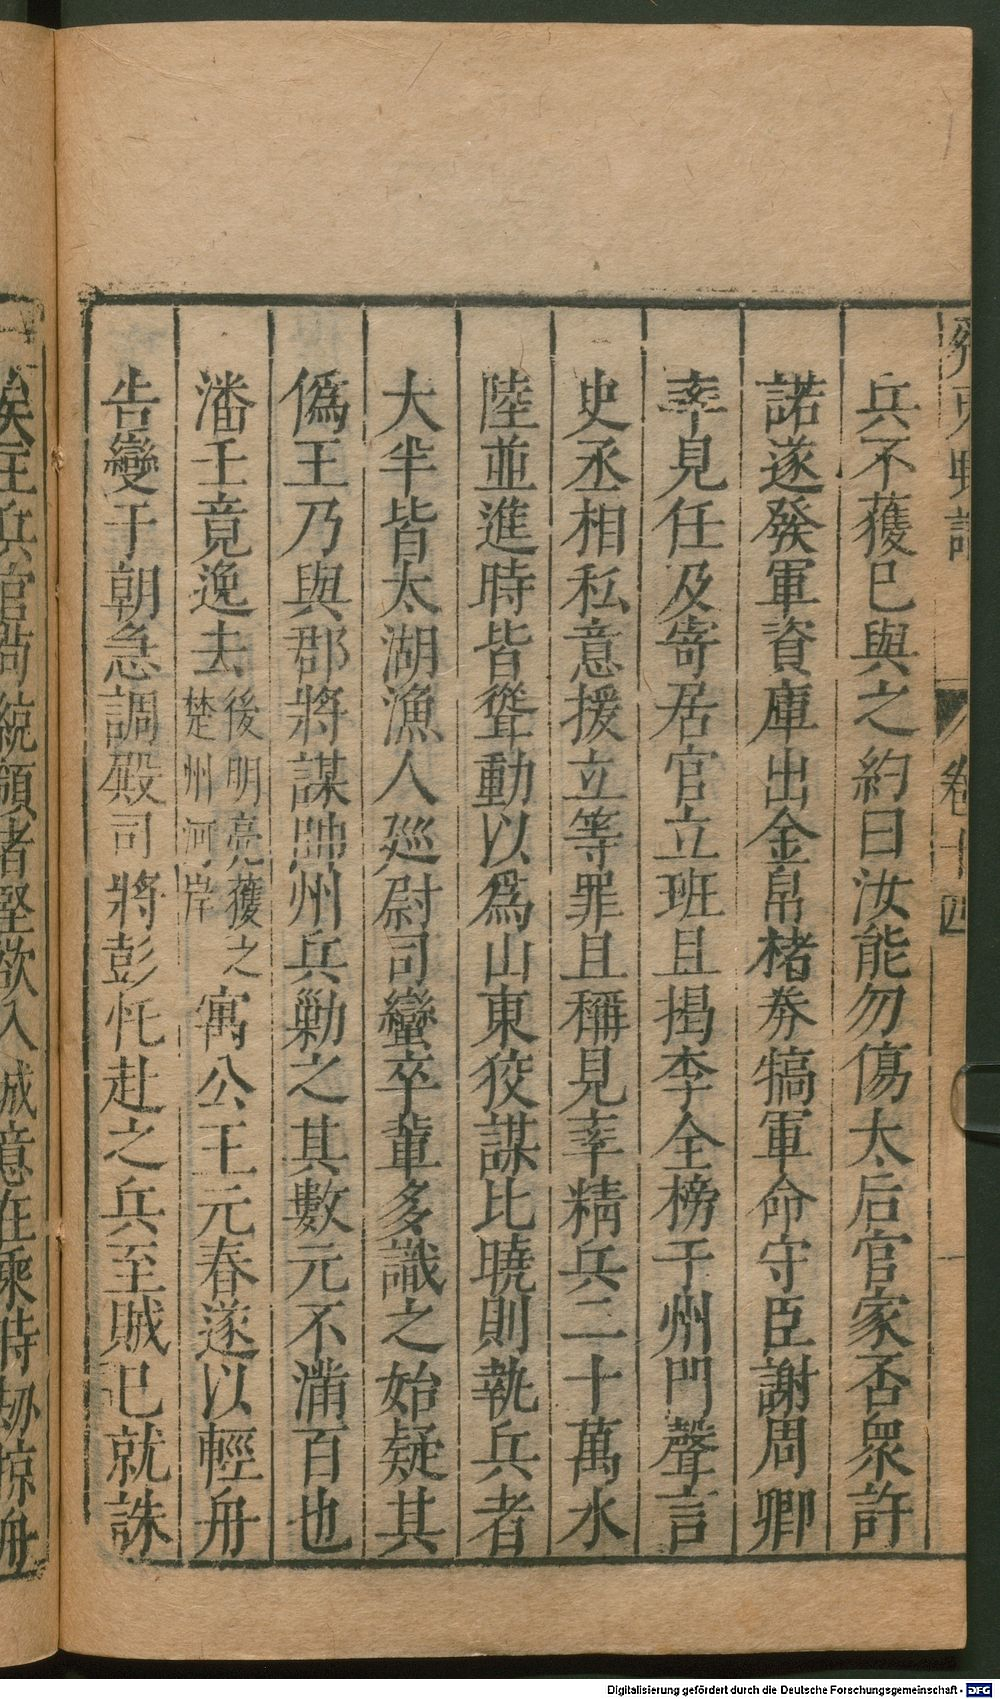 兵不獲已與之約曰汝能勿傷太后官家否衆許
諾遂發軍資庫出金帛楮券犒軍命守臣謝周卿
率見任及寄居官立班且揭李全榜于州門聲言
史丞相私意援立等罪且稱見率精兵二十萬水
陸並進時皆聳動以爲山東狡謀比曉則執兵者
大半皆太湖漁人廵尉司蠻卒輩多識之始疑其
僞王乃與郡將謀帥州兵勦之其數元不滿百也
潘壬竟逸去後明亮獲之楚州河岸寓公王元春遂以輕舟
告變于朝急調殿司將彭忔赴之兵至賊已就誅
卷十四
Digitalisierung gefördert durch die Deutsche Forschungsgemeinschaft - DFG